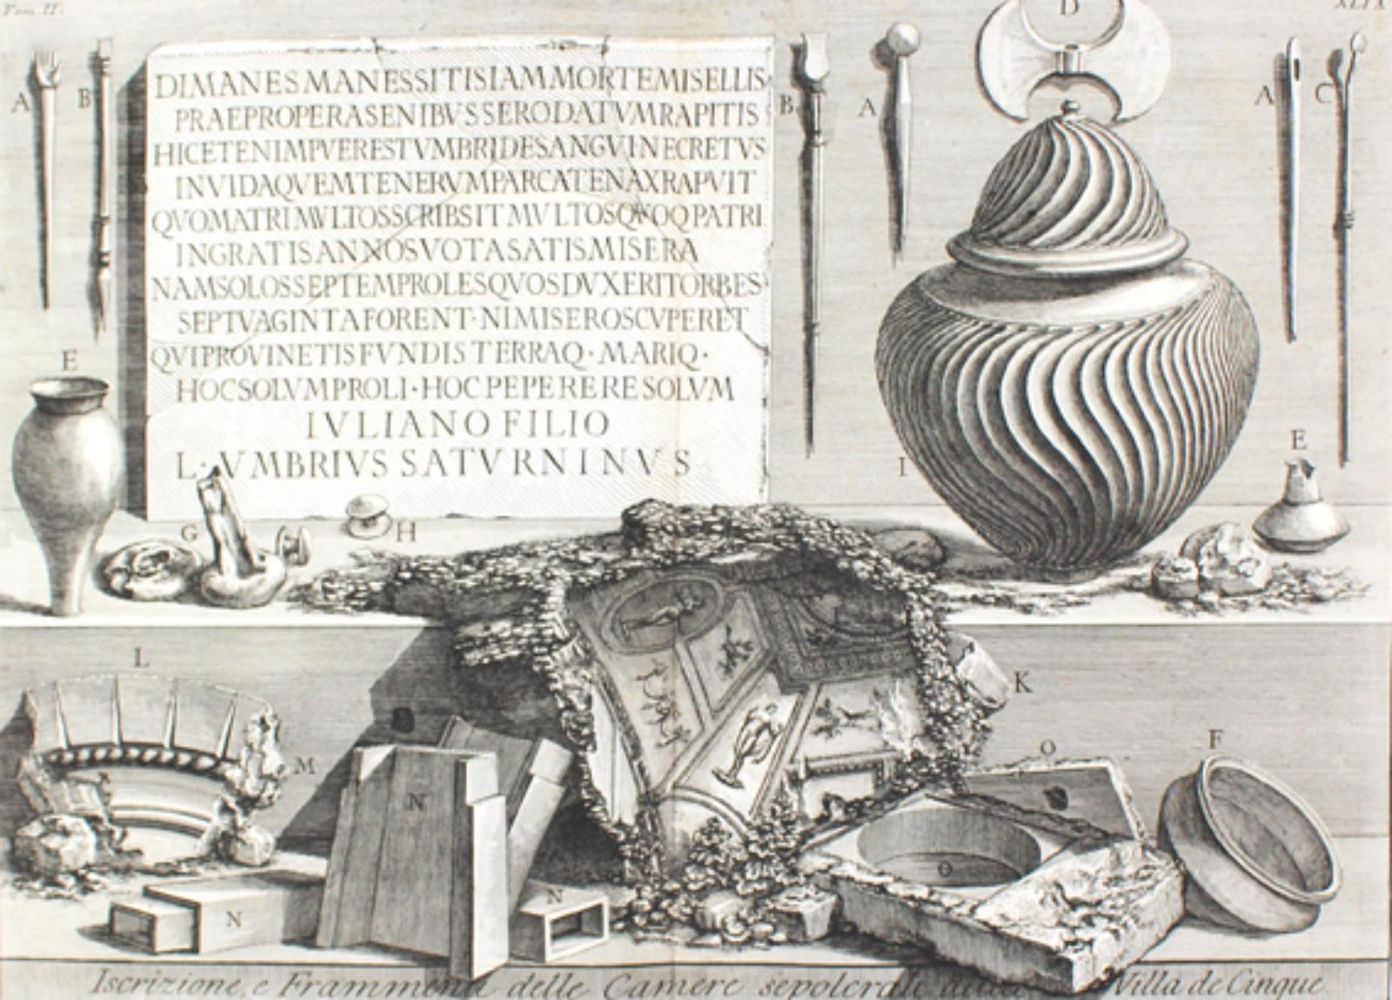 Tom. II.
XLIX
DIMANESMANESSITISIAMMORTEMISELLIS
PRAEPROPERASENIBVSSERODATVMRAPITIS
HICETENIMPVERESTVMBRIDESANGVINECRETVS
INVIDAQVEMTENERVMPARCATENAXRAPVIT
QVOMATRIMVLTOSSCRIBSITMVLTOSQVOQPATRI
INGRATISANNOSVOTASATISMISERA
NAMSOLOSSEPTEMPROLESQVOSDVXERITORBES
SEPTVAGINTAFORENT·NIMISEROSCVPERET
QVIPROVINETISFVNDISTERRAQ·MARIQ·
HOCSOLVMPROLI·HOCPEPERERESOLVM
IVLIANO FILIO
L·VMBRIVS SATVRNINVS
A
B
B
A
D
A
C
E
I
E
G
H
L
K
M
N
O
F
N
N
O
Iscrizione, e Frammenti delle Camere sepolcrali Villa de Cinque